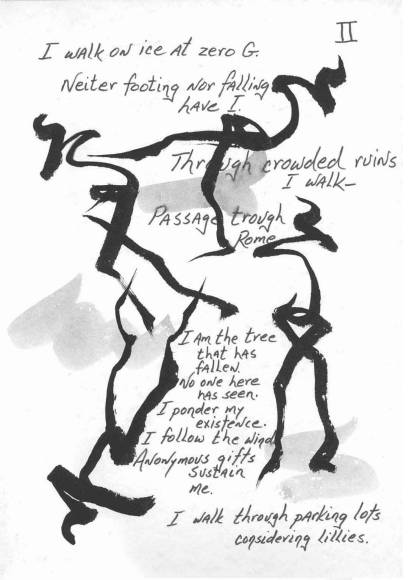 II
I walk on ice at zero G.
Neiter footing nor falling
have I.
Through crowded ruins
I walk-
Passage trough
Rome
I am the tree
that has
fallen.
No one here
has seen.
I ponder my
existence.
I follow the wind
Anonymous gifts
sustain
me.
I walk through parking lots
considering lillies.